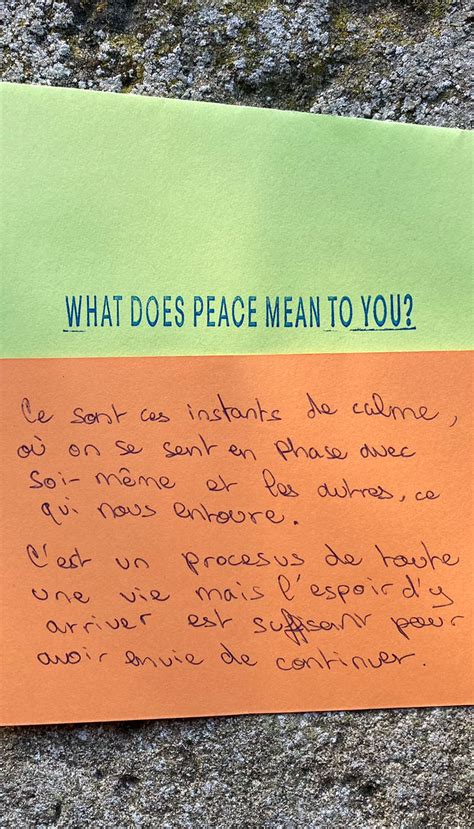 WHAT DOES PEACE MEAN TO YOU?
Ce sont ces instants de calme,
où on se sent en phase avec
soi-même et les autres, ce
qui nous entoure.
C'est un procesus de toute
une vie mais l'espoir d'y
arriver est suffisant pour
avoir envie de continuer.